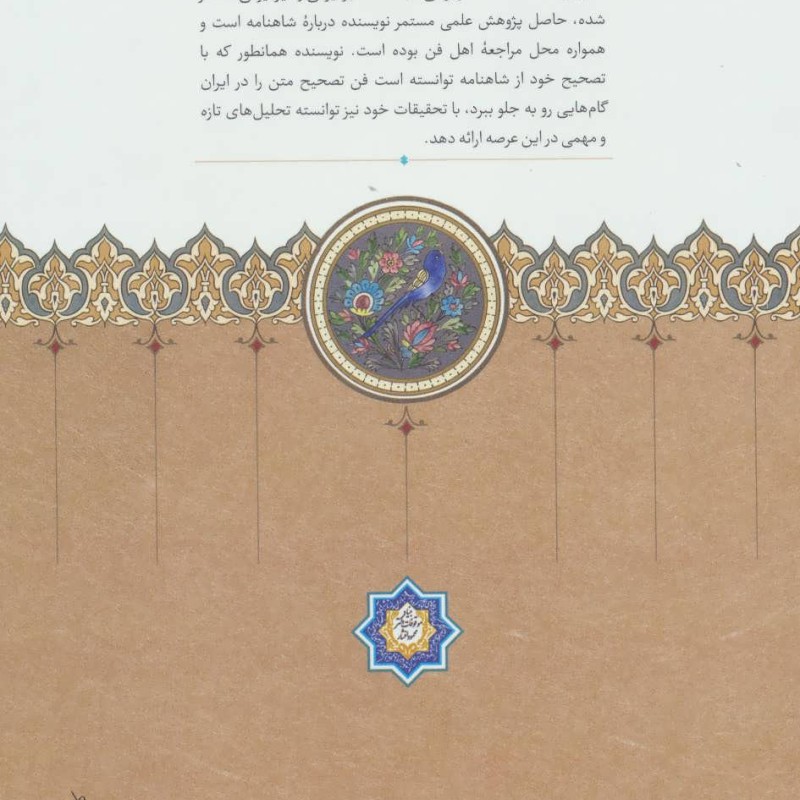 شده، حاصل پژوهش علمی مستمر نویسنده دربارهٔ شاهنامه است و
همواره محل مراجعهٔ اهل فن بوده است. نویسنده همانطور که با
تصحیح خود از شاهنامه توانسته است فن تصحیح متن را در ایران
گام‌هایی رو به جلو ببرد، با تحقیقات خود نیز توانسته تحلیل‌های تازه
و مهمی در این عرصه ارائه دهد.
بنیاد
موقوفات دکتر
محمود افشار